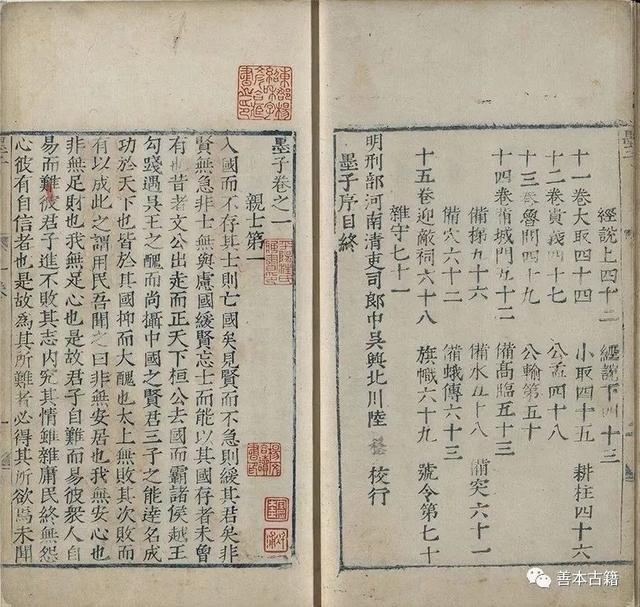 經說上四十二 經說下四十三
十一卷大取四十四 小取四十五 耕柱四十六
十二卷貴義四十七 公孟四十八
十三卷魯問四十九 公輸第五十
十四卷備城門五十二 備高臨五十三
備梯五十六 備水五十八 備突六十一
備穴六十二 備蛾傳六十三
十五卷迎敵祠六十八 旗幟六十九 號令第七十
雜守七十一
明刑部河南清吏司郎中吳興北川陸 校行
墨子序目終
墨子
墨子卷之一
親士第一
入國而不存其士則亡國矣見賢而不急則緩其君矣非
賢無急非士無與慮國緩賢忘士而能以其國存者未曾
有也昔者文公出走而正天下桓公去國而霸諸侯越王
勾踐遇吳王之醜而尚攝中國之賢君三子之能達名成
功於天下也皆於其國抑而大醜也太上無敗其次敗而
有以成此之謂用民吾聞之曰非無安居也我無安心也
非無足財也我無足心也是故君子自難而易彼衆人自
易而難彼君子進不敗其志内究其情雖雜庸民終無怨
心彼有自信者也是故爲其所難者必得其所欲焉未聞
善本古籍